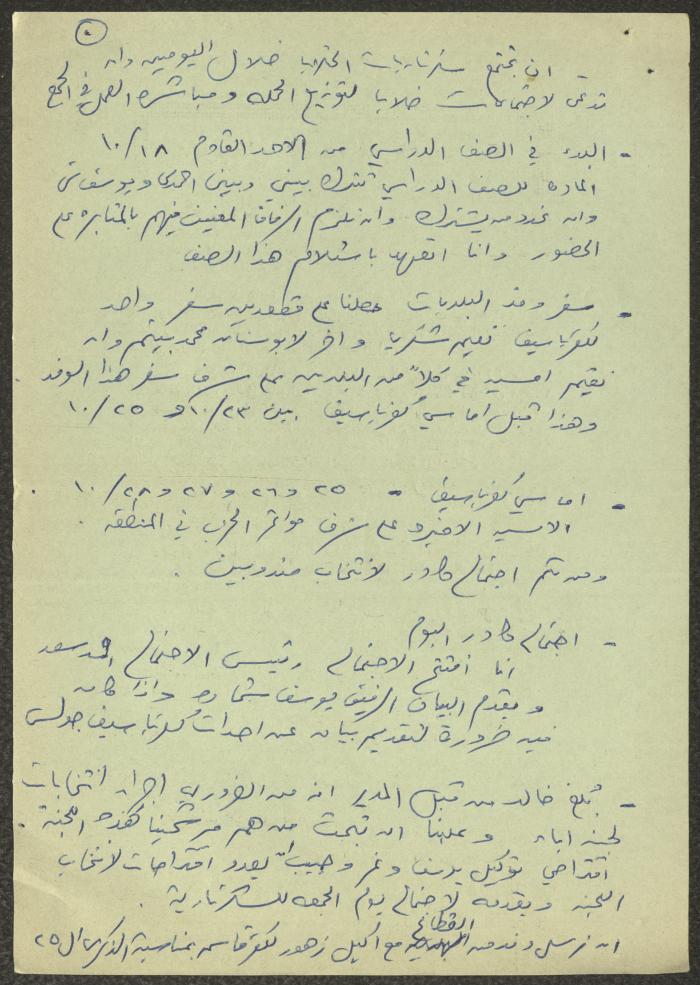 ان تجتمع سكرتاريات الخلايا خلال اليومين وان
تدعى لاجتماعات خلايا لتوزيع الحملة ومباشرة العمل في الجمع
- البدء في الصف الدراسي من الاحد القادم ١٠/١٨
المادة للصف الدراسي تترك بيني وبين احمد ويوسف
وان نحدد من يشترك وان نلزم الرفاق المعينين فيهم بالمثابرة على
الحضور وانا اتعهد باستلام هذا الصف
- سفر وفد البلديات حصلنا على مقعدين سفر واحد
لكفرياسيف نعيم شكريا واخر لابوسنان محمد وان
نقيم امسية في كلا من البلدين على شرف سفر هذا الوفد
وهذا قبل اماسي كفرياسيف بين ١٠/٢٣ و ١٠/٢٥
- اماسي كفرياسيف - ٢٥ و ٢٦ و ٢٧ و ١٠/٢٨
الامسية الاخيرة على شرف مؤتمر الحزب في المنطقة
ومن ثم اجتماع كادر لانتخاب مندوبين .
- اجتماع كادر اليوم
انا افتتح الاجتماع رئيس الاجتماع سعد
ويقدم البيان الرفيق يوسف شحادة واذا كان
فيه ضرورة لتقديم بيان عن احداث كفرياسيف جولس
- تبلغ خالد من قبل المدير انه من الضروري اجراء انتخابات
لجنة اباء وعلينا ان نبحث من هم مرشحينا لهذه اللجنة .
اقتراحي توكيل يوسف ونمر وحبيب لاعداد اقتراحات لانتخاب
اللجنة ويقدمه لاجتماع يوم الجمعة للسكرتارية .
ان نرسل وفد من القطاع مع اكليل زهور لكفرقاسم بمناسبة الذكرى ال ٢٥